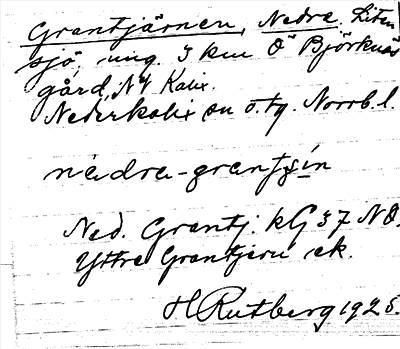 Grantjärnen, Nedre. Liten
sjö, ung. 3 km Ö Björknäs
gård, NV Kalix.
Nederkalix sn o. tg. Norrb. l.
nädra-grantjín
Ned. Grantj. kG 37 NO.
Yttre Grantjern ek.
H Rutberg 1925.